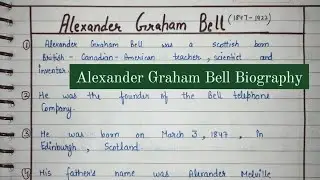 Alexander Graham Bell (1847-1922)
① Alexander Graham Bell was a scottish born
British - Canadian - American teacher, scientist and
inventor.
Alexander Graham Bell Biography
② He was the founder of the Bell telephone
Company.
③ He was born on March 3, 1847, in
Edinburgh, Scotland.
④ His father's name was Alexander Melville